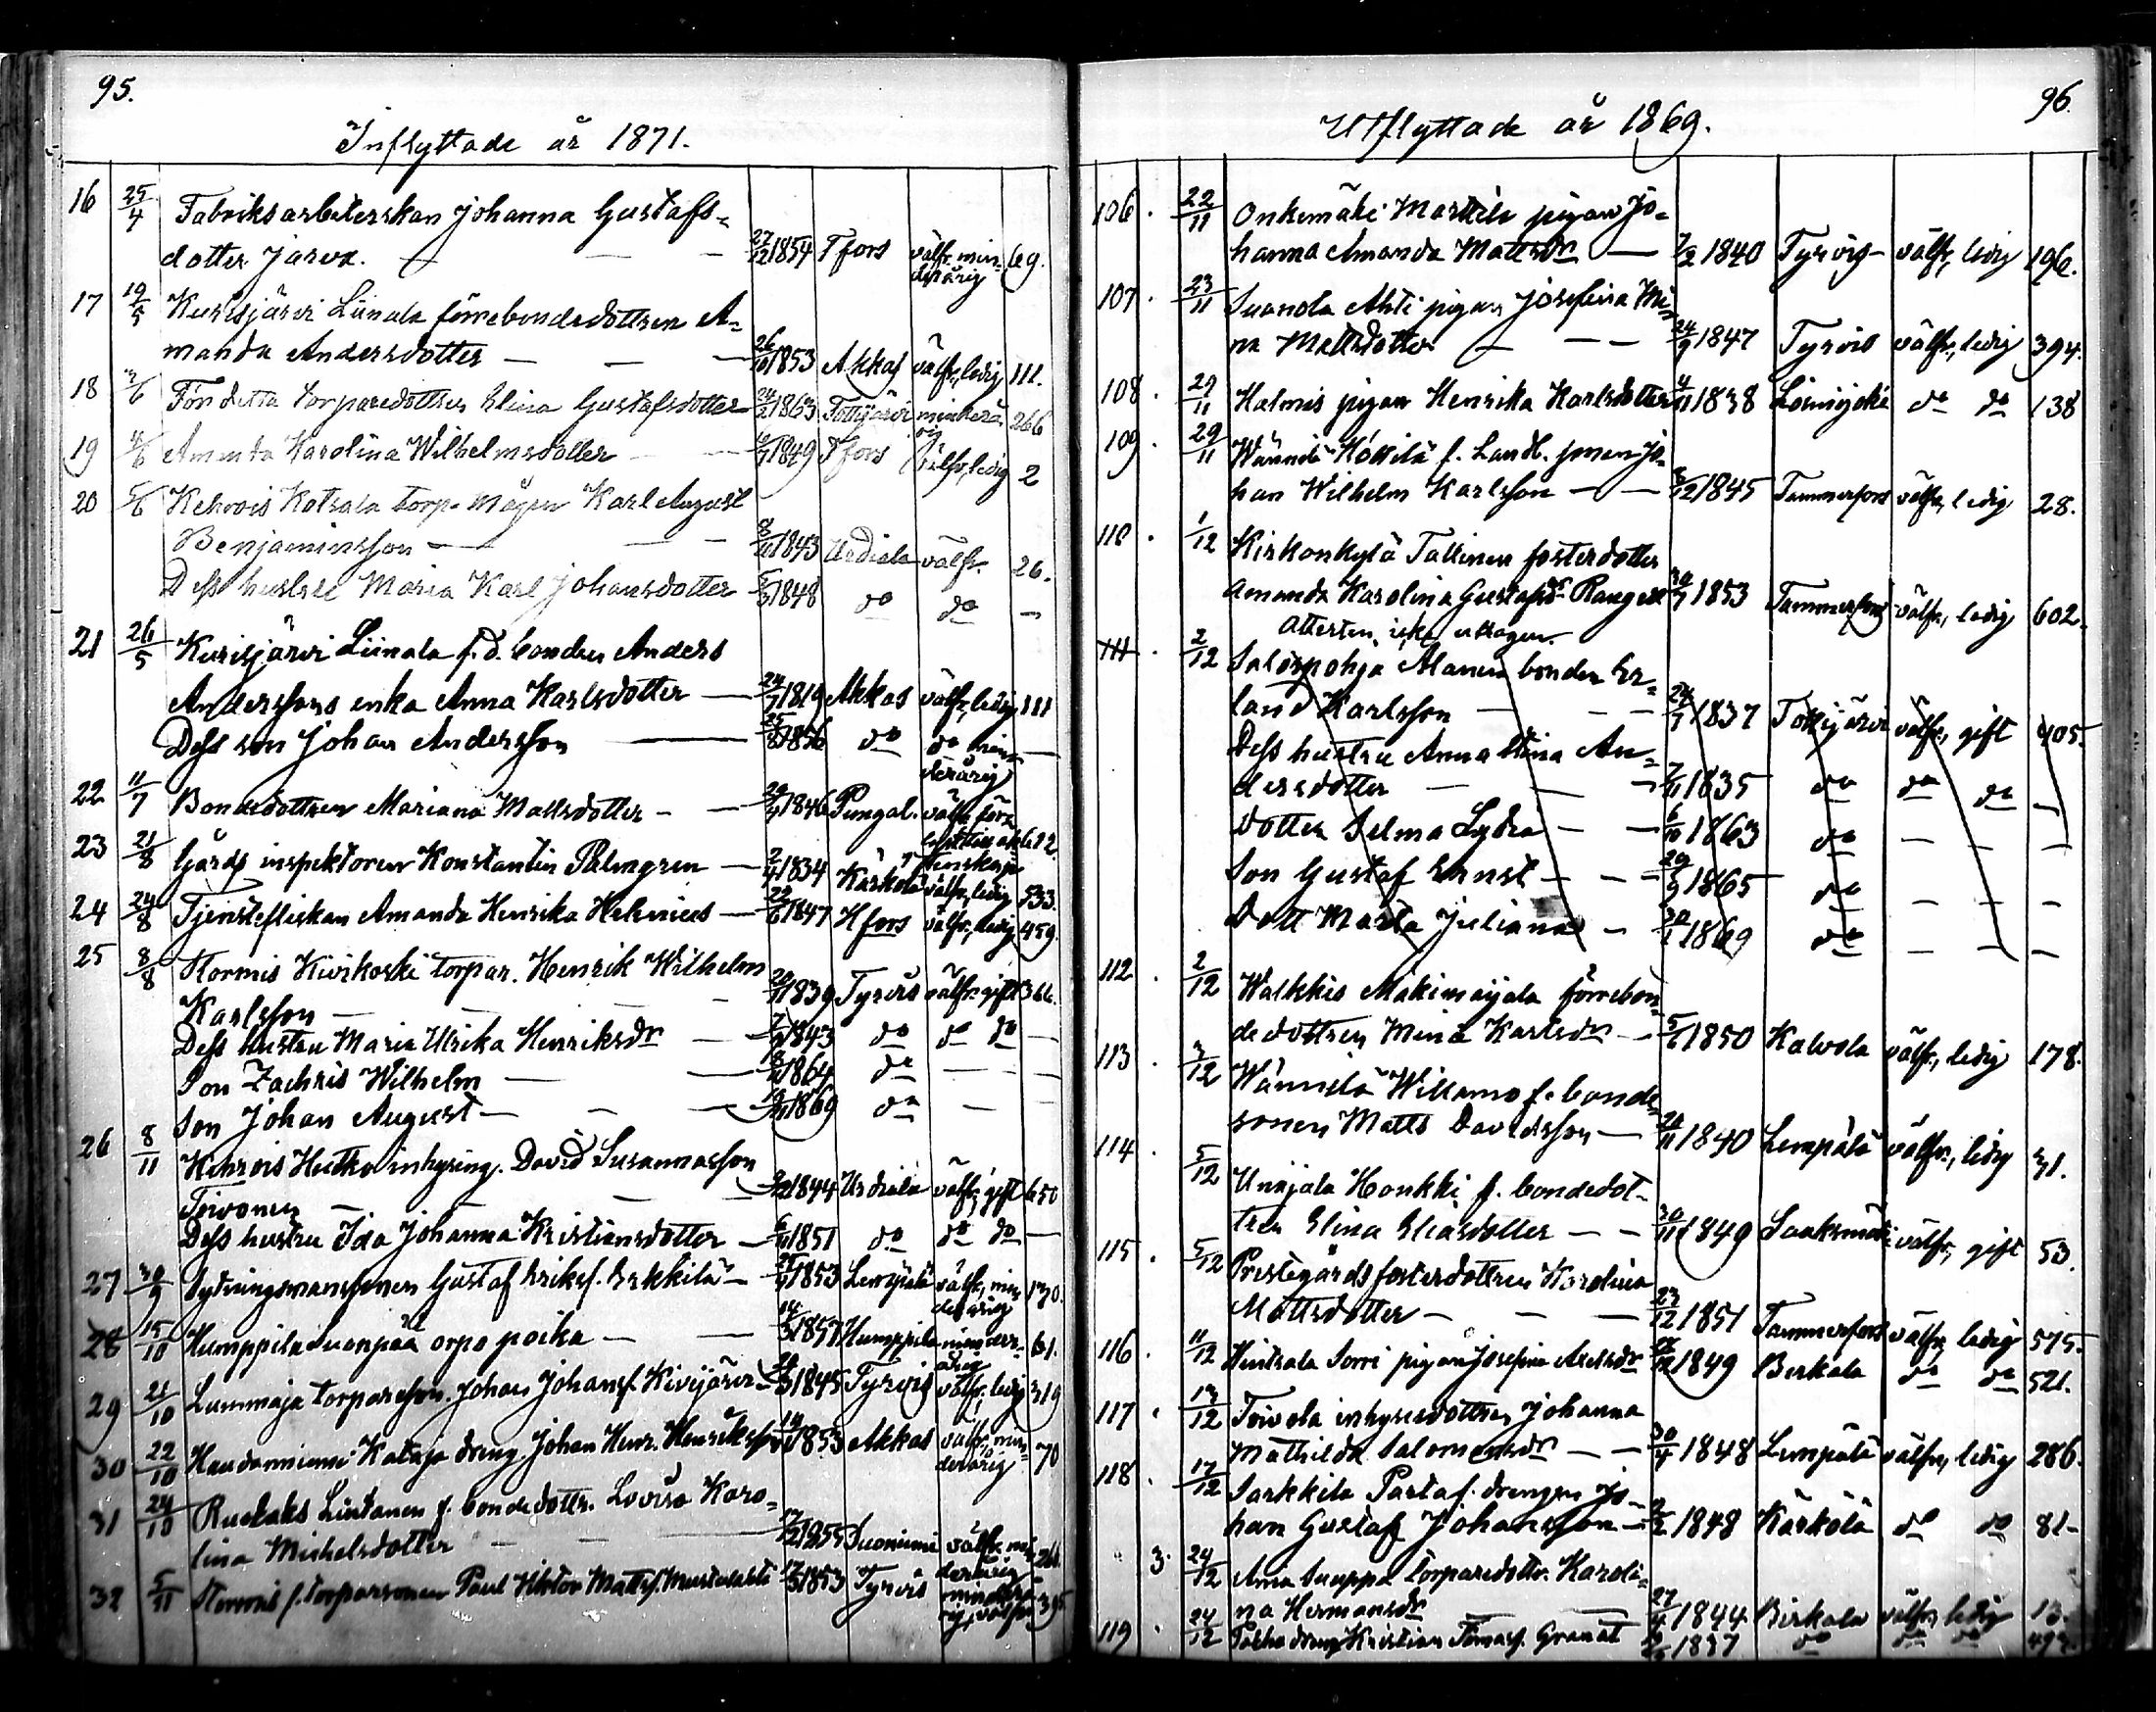 95.
Inflyttade år 1871.
16 25/4 Fabriksarbeterskan Johanna Gustafs-
dotter Järva. — — 27/12 1854 Tfors välfr. min-
derårig 69.
17 19/5 Kurisjärvi Liunala förrebondedottren A-
manda Andersdotter — — — 26/10 1853 Akkas välfr., ledig 111.
18 Fön detta torparedottren Elina Gustafsdotter 1863 Tottijärvi minderå
rig 266
19 Amanda Karolina Wilhelmsdotter — — 1849 Tfors välfr., ledig 2
20 Kehrois Kotsala torp. mågen Karl August
Benjaminsson — — — 1843 Urdiala välfr. 26.
Dess hustru Maria Karl Johansdotter 1848 do do —
21 26/5 Kurisjärvi Liinala f. d. bonden Anders
Anderssons enka Anna Karlsdotter — 24/7 1819 Akkas välfr., ledig 111
Dess son Johan Andersson — 25/8 1856 do do min
derårig —
22 11/7 Bondedottren Mariana Mattsdotter — — 1846 Pungal. välfr. förr
612.
23 21/8 Gårds inspektoren Konstantin Palmgren — 2/4 1834 Kärkölä välfr., ledig 533.
24 24/8 Tjensteflickan Amanda Henrika Helenius — 22/6 1847 Hfors välfr., ledig 459.
25 8/8 Stormis Kivikoski torpar. Henrik Wilhelm
Karlsson — — — 20/11 1839 Tyrvis välfr. gift 366.
Dess hustru Maria Ulrika Henriksdr — — 1843 do do do —
Son Zachris Wilhelm — — 1864 do — — —
Son Johan August — — — 1869 do — —
26 8/11 Kehrois Hutko inhysing. David Susannasson
Toivonen — — — 1844 Urdiala välfr., gift 650
Dess hustru Ida Johanna Kristiansdotter — 1851 do do do —
27 30/9 Sytningsmanssonen Gustaf Eriksf. Erkkilä — 1853 Lempälä välfr., min
derårig 130.
28 15/10 Humppila Suonpää orpo poika — — 14/3 1857 Humppila minder-
årig 61.
29 21/10 Lummaja torpareson. Johan Johansf. Kivijärvi — 1845 Tyrvis välfr., ledig 319
30 22/10 Handanniemi Kataja dreng Johan Henr. Henriksson 1853 Akkas välfr., min
derårig 70
31 24/10 Rudaks Liutanen f. bondedottr. Lovisa Karo-
lina Michelsdotter — — 1855 Suoniemi välfr. min
derårig 26.
32 5/11 Stormis f. torparsonen Paul Viktor Mattsf. Mustalahti 1853 Tyrvis minderå
rig, välfr. 395

96.
Utflyttade år 1869.
106. 22/11 Onkemäki Marttila pigan Jo-
hanna Amanda Mattsdr — 7/2 1840 Tyrvis — välfr., ledig 196.
107. 23/11 Suanola Ahti pigan Josefina Mi-
na Mattsdotter — — — 24/9 1847 Tyrvis välfr., ledig 394.
108. 29/11 Halmis pigan Henrika Karlsdotter 4/11 1838 Loimijoki do do 138
109. 29/11 Wännilä Hössilä f. Landb. sonen Jo-
han Wilhelm Karlsson — — 3/12 1845 Tammerfors välfr., ledig 28.
110. 1/12 Kirkonkylä Tallinen fosterdotter
Amanda Karolina Gustafsdr Rangell 1853 Tammerfors välfr., ledig 602.
Attesten icke uttagen.
111. 2/12 Salospohja Alanen bonden Er-
land Karlsson — — — 24/7 1837 Tottijärvi välfr., gift 405.
Dess hustru Anna Stina An-
dersdotter — — — 7/11 1835 do do do —
dotter Selma Lydia — — 6/10 1863 do — — —
Son Gustaf Ernst — — — 29/9 1865 do — — —
Dott Maria Juliana — 1869 do — — —
112. 2/12 Walkkis Mäkimaijala förrebon-
dedottren Mina Karlsdr — 5/6 1850 Kalvola välfr., ledig 178.
113. 3/12 Wännilä Willamo f. bonde-
sonen Matts Davidsson — 20/11 1840 Lempälä välfr., ledig 31.
114. 5/12 Unajala Honkki f. bondedot-
tren Elina Eliasdotter — — 30/11 1849 Saaksmäki välfr., gift 53.
115. 5/12 Prestegårds fosterdottren Karolina
Mattsdotter — — — 23/12 1851 Tammerfors välfr., ledig 575.
116. 11/12 Heinsala Sorri pigan Josefina Axelsdr 1849 Birkala do do 521.
117. 13/12 Toivola inhysesdottren Johanna
Mathilda Salomonsdr — — 30/4 1848 Lempälä välfr., ledig 286.
118. 17/12 Sarkkila Parta f. drengen Jo-
han Gustaf Johansson — 1848 Kärkölä do do 81 —
3. 24/12 Anna Seuppa torparedottr. Karoli-
na Hermansdr — — 27/4 1844 Birkala välfr., ledig 13.
119. 24/12 Pakha dreng Kristian Tomasf. Granat 1837 do do do